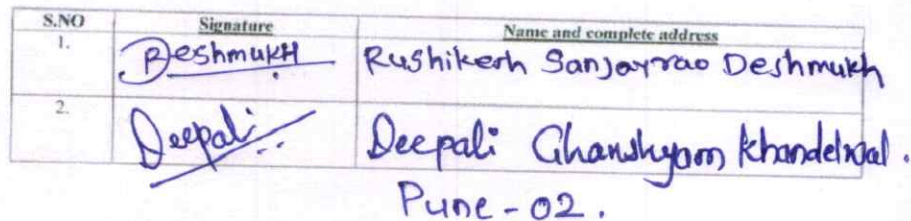 S.NO Signature Name and complete address
1. Deshmukh Rushikesh Sanjayrao Deshmukh
2. Deepali Deepali Ghanshyam Khandelwal.
Pune-02.